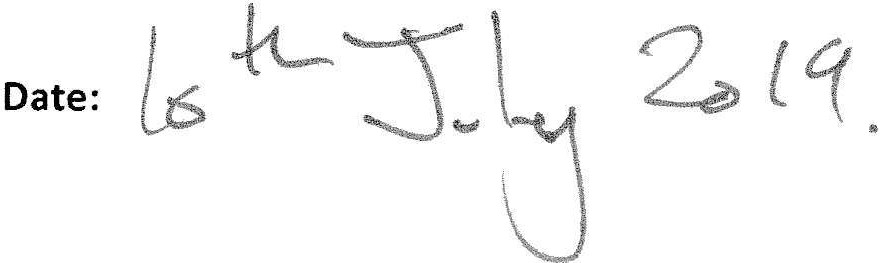 Date: 10th July 2019.